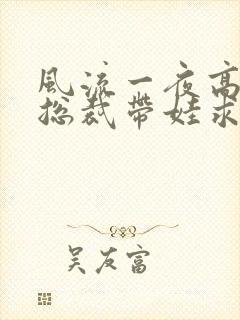 風流一夜高
總裁帶娃求
吴友富